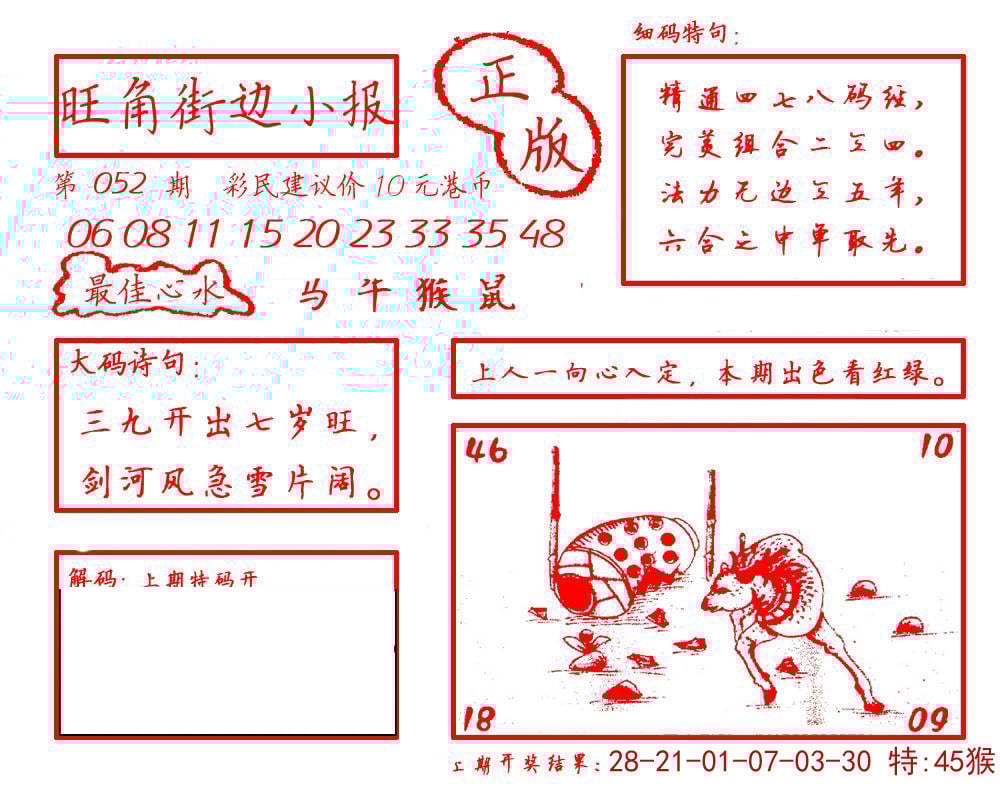 旺角街边小报
正版
第 052 期 彩民建议价 10 元港币
06 08 11 15 20 23 33 35 48
最佳心水
马 牛 猴 鼠
细码特句:
精通四七八码经,
完美组合二三四。
法力无边三五年,
六合之中单取先。
大码诗句:
三九开出七岁旺,
剑河风急雪片阔。
上人一向心入定, 本期出色看红绿。
解码· 上期特码开
46
10
18
09
上期开奖结果: 28-21-01-07-03-30 特:45猴